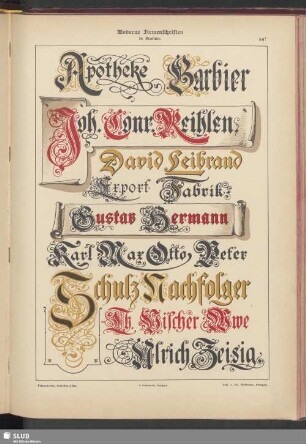 Moderne Firmenschriften
Apotheke Barbier
Joh. Conr. Reihlen.
David Leibrand
Export Fabrik.
Gustav Hermann
Karl Max Otto, Peter
Schulz Nachfolger
Th. Vischer Wwe
Ulrich Zeisig.
SLUB